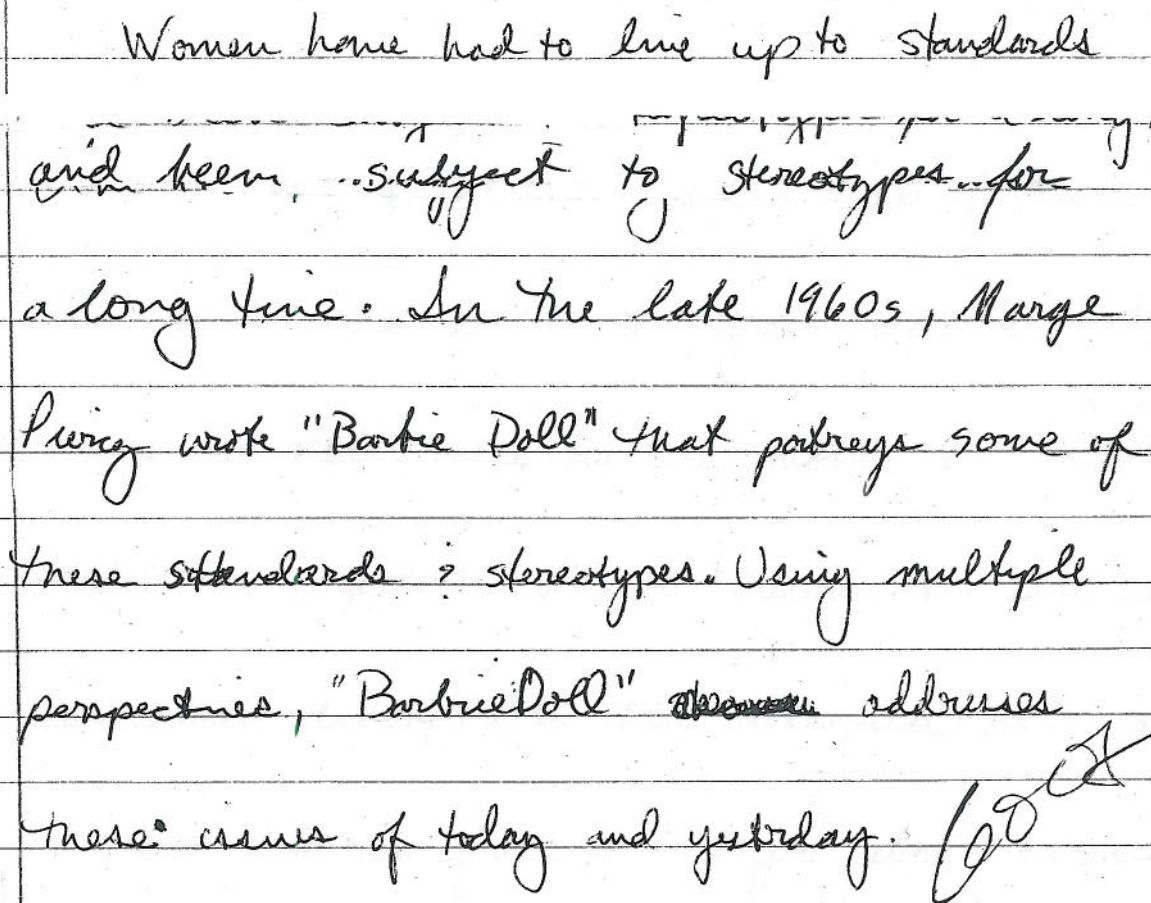 Women have had to live up to standards
and been subject to stereotypes for
a long time. In the late 1960s, Marge
Piercy wrote "Barbie Doll" that portreys some of
these sttandards & stereotypes. Using multiple
perspectives, "Barbie Doll" addresses
these issues of today and yesterday.